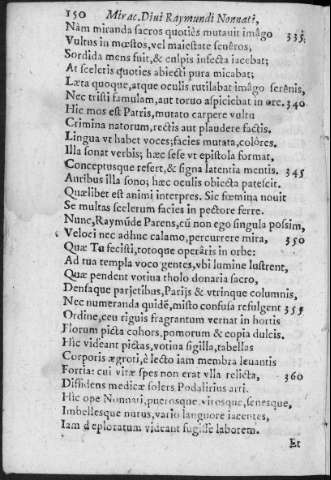 150 Mirac. Diui Raymundi Nonnati,
Nàm miranda sacros quotiês mutauit imâgo 335
Vultus in mœstos, vel maiestate seuêros;
Sordida mens fuit, & culpis infecta iacebat;
At sceleris quoties abiecti pura micabat;
Læta quoque, atque oculis rutilabat imâgo serênis,
Nec tristi famulam, aut toruo aspiciebat in ore. 340
Hic mos est Patris, mutato carpere vultu
Crimina natorum, rectis aut plaudere factis.
Lingua vt habet voces; facies mutata, colôres.
Illa sonat verbis; hæc sese vt epistola format,
Conceptusque refert, & signa latentia mentis. 345
Auribus illa sono; hæc oculis obiecta patescit.
Quælibet est animi interpres. Sic fœmina nouit
Se multas scelerum facies in pectore ferre.
Nunc, Raymũde Parens, cũ non ego singula possim,
Veloci nec adhuc calamo, percurrere mira, 350
Quæ Tu fecisti, totoque operâris in orbe:
Ad tua templa voco gentes, vbi lumine lustrent,
Quæ pendent votiua tholo donaria sacro,
Densaque parjetibus, Patijs & vtrinque columnis,
Nec numeranda quidẽ, misto confusa refulgent 355
Ordine, ceu riguis fragrantum vernat in hortis
Florum picta cohors, pomorum & copia dulcis.
Hîc videant pictas, votiua sigilla, tabellas
Corporis ægroti, è lecto iam membra leuantis
Fortia: cui vitæ spes non erat vlla relicta, 360
Diffidens medicæ solers Podalirius arti.
Hîc ope Nonnati, puerosque, virosque, senesque,
Imbellesque nurus, vario languore iacentes,
Iam deploratum videant fugisse laborem.
Et